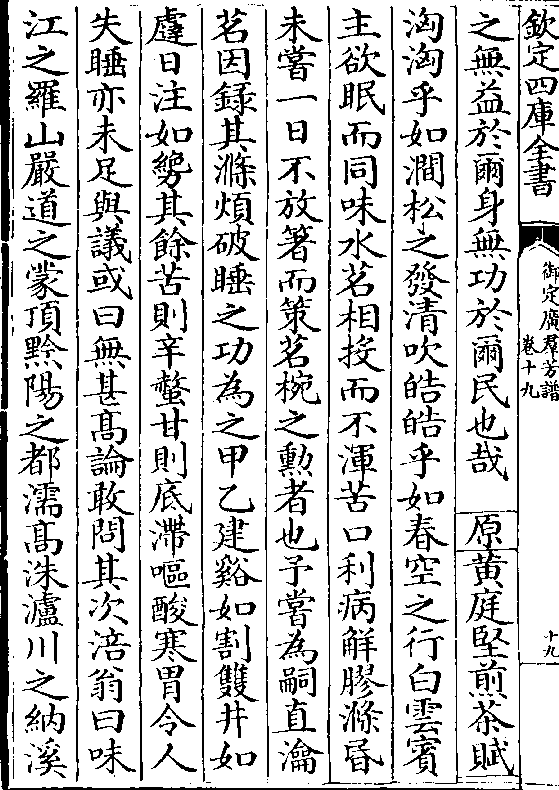 欽定四庫全書
御定廣羣芳譜
卷十九
十九
之無益於爾身無功於爾民也哉　原黄庭堅煎茶賦
洶洶乎如澗松之發清吹皓皓乎如春空之行白雲賓
主欲眠而同味水茗相投而不渾苦口利病解膠滌昏
未嘗一日不放箸而策茗椀之勲者也予嘗為嗣直瀹
茗因錄其滌煩破睡之功為之甲乙建谿如割雙井如
䖍日注如㔟其餘苦則辛螫甘則底滯嘔酸寒胃令人
失睡亦未足與議或曰無甚髙論敢問其次涪翁曰味
江之羅山嚴道之䝉頂黔陽之都濡髙洙瀘川之納溪